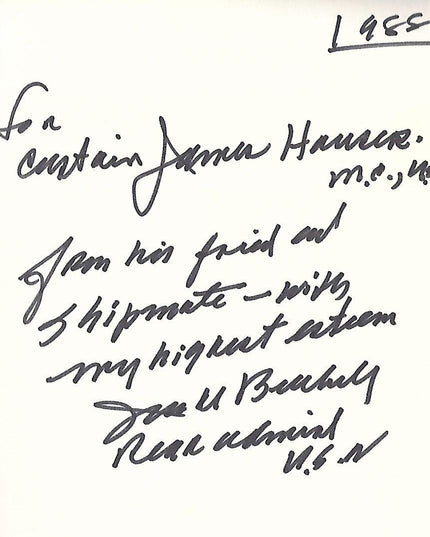 1988
For
Captain James Hauser.
M.C., U
From his friend and
Shipmate – with
my highest esteem
Rear Admiral
U.S.N